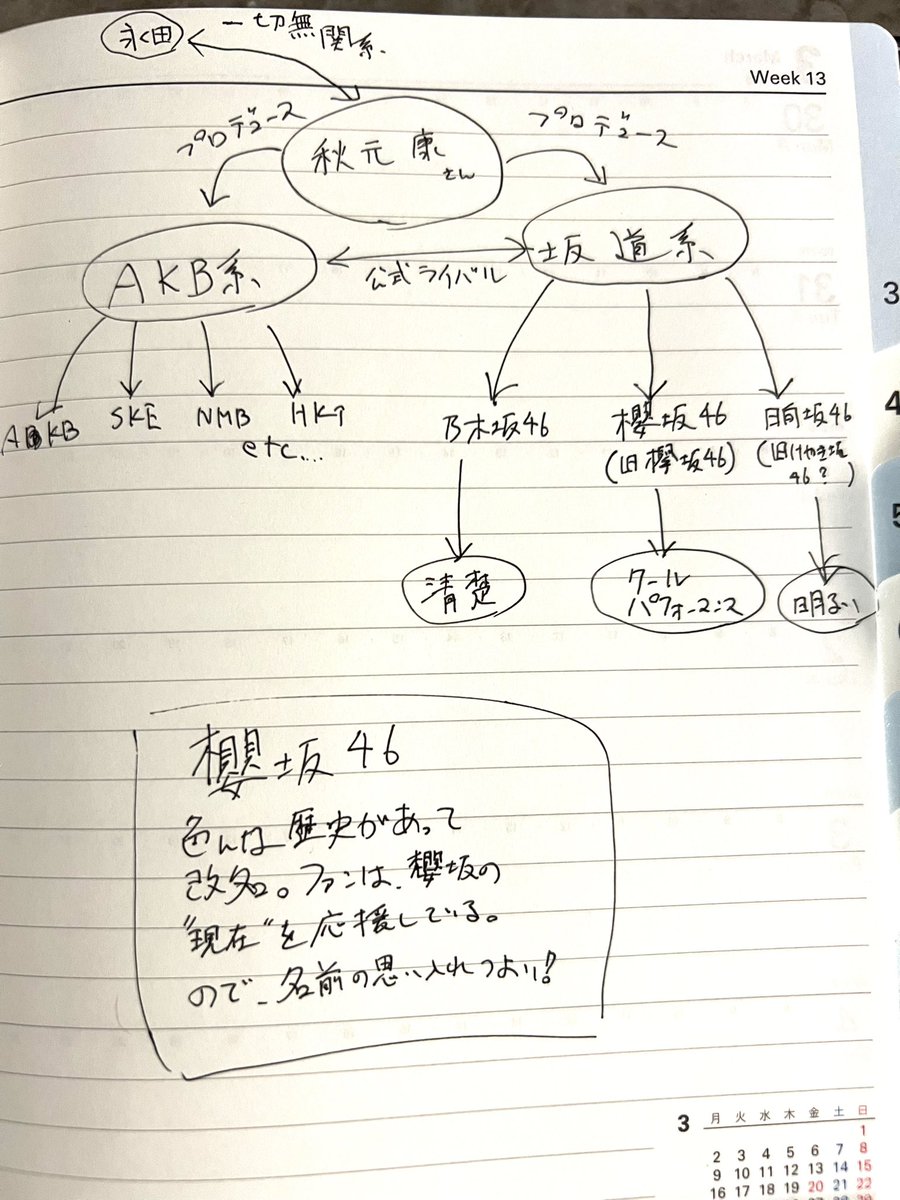 永田
一切無関係
Week 13
プロデュース
プロデュース
秋元康
さん
AKB系
公式ライバル
坂道系
AKB
SKE
NMB
HKT
etc...
乃木坂46
櫻坂46
(旧欅坂46)
日向坂46
(旧けやき坂
46?)
清楚
クール
パフォーマンス
明るい
櫻坂46
色んな歴史があって
改名。ファンは、櫻坂の
"現在"を応援している。
ので、名前の思い入れつよい!!
3
4
5
3
月 火 水 木 金 土 日
1
2 3 4 5 6 7 8
9 10 11 12 13 14 15
16 17 18 19 20 21 22